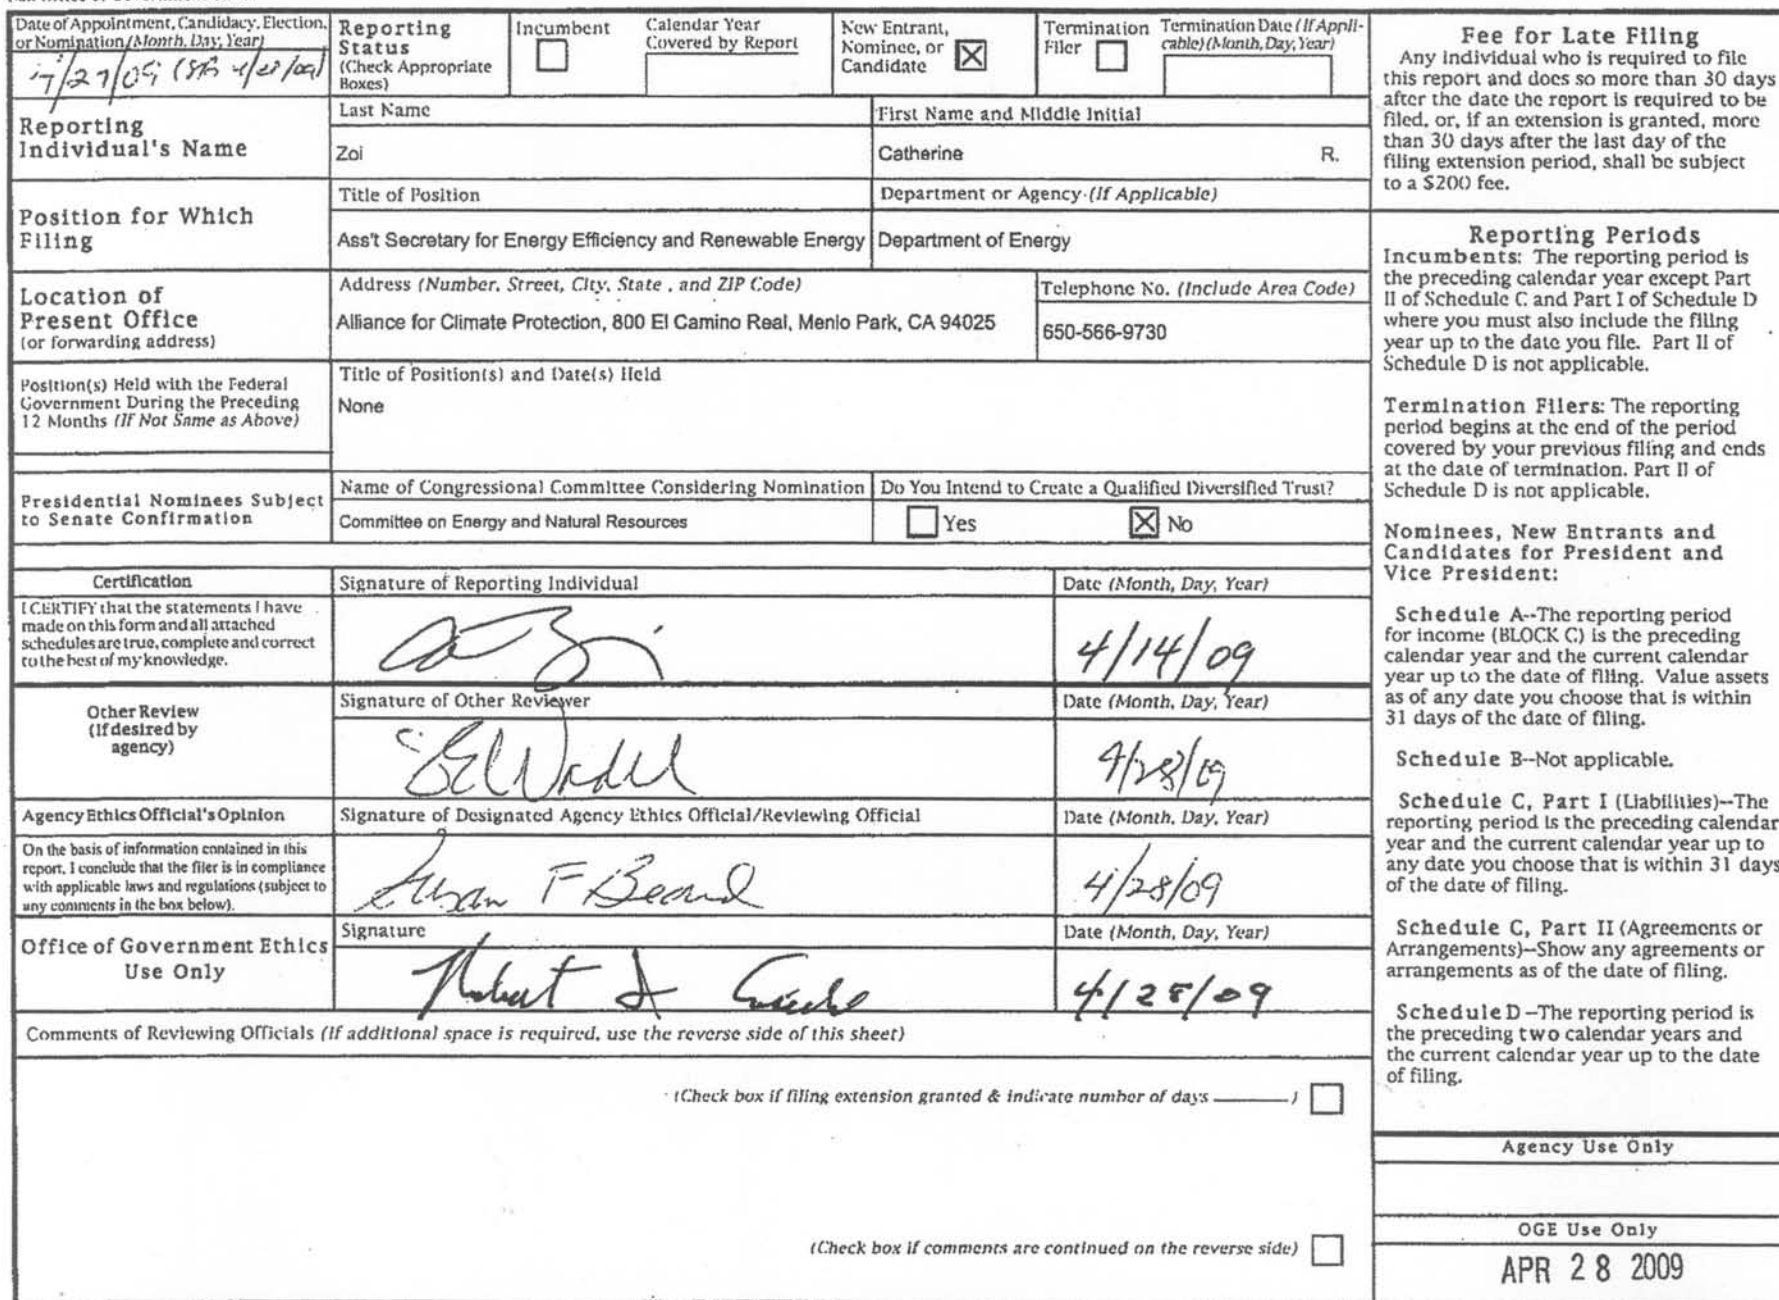 Date of Appointment, Candidacy, Election,
or Nomination (Month, Day, Year)
/27/09 (4/28/09)
Reporting
Status
(Check Appropriate
Boxes)
Incumbent
Calendar Year
Covered by Report
New Entrant,
Nominee, or
Candidate
Termination
Filer
Termination Date (If Appli-
cable) (Month, Day, Year)
Reporting
Individual's Name
Last Name
First Name and Middle Initial
Zoi
Catherine R.
Position for Which
Filing
Title of Position
Department or Agency (If Applicable)
Ass't Secretary for Energy Efficiency and Renewable Energy
Department of Energy
Location of
Present Office
(or forwarding address)
Address (Number, Street, City, State , and ZIP Code)
Telephone No. (Include Area Code)
Alliance for Climate Protection, 800 El Camino Real, Menlo Park, CA 94025
650-566-9730
Position(s) Held with the Federal
Government During the Preceding
12 Months (If Not Same as Above)
Title of Position(s) and Date(s) Held
None
Presidential Nominees Subject
to Senate Confirmation
Name of Congressional Committee Considering Nomination
Do You Intend to Create a Qualified Diversified Trust?
Committee on Energy and Natural Resources
Yes
No
Certification
Signature of Reporting Individual
Date (Month, Day, Year)
I CERTIFY that the statements I have
made on this form and all attached
schedules are true, complete and correct
to the best of my knowledge.
4/14/09
Other Review
(If desired by
agency)
Signature of Other Reviewer
Date (Month, Day, Year)
4/28/09
Agency Ethics Official's Opinion
Signature of Designated Agency Ethics Official/Reviewing Official
Date (Month, Day, Year)
On the basis of information contained in this
report, I conclude that the filer is in compliance
with applicable laws and regulations (subject to
any comments in the box below).
Susan F Beard
4/28/09
Office of Government Ethics
Use Only
Signature
Date (Month, Day, Year)
Robert
4/28/09
Comments of Reviewing Officials (If additional space is required, use the reverse side of this sheet)
(Check box if filing extension granted & indicate number of days ______)
(Check box if comments are continued on the reverse side)
Fee for Late Filing
Any individual who is required to file
this report and does so more than 30 days
after the date the report is required to be
filed, or, if an extension is granted, more
than 30 days after the last day of the
filing extension period, shall be subject
to a $200 fee.
Reporting Periods
Incumbents: The reporting period is
the preceding calendar year except Part
II of Schedule C and Part I of Schedule D
where you must also include the filing
year up to the date you file. Part II of
Schedule D is not applicable.
Termination Filers: The reporting
period begins at the end of the period
covered by your previous filing and ends
at the date of termination. Part II of
Schedule D is not applicable.
Nominees, New Entrants and
Candidates for President and
Vice President:
Schedule A--The reporting period
for income (BLOCK C) is the preceding
calendar year and the current calendar
year up to the date of filing. Value assets
as of any date you choose that is within
31 days of the date of filing.
Schedule B--Not applicable.
Schedule C, Part I (Liabilities)--The
reporting period is the preceding calendar
year and the current calendar year up to
any date you choose that is within 31 days
of the date of filing.
Schedule C, Part II (Agreements or
Arrangements)--Show any agreements or
arrangements as of the date of filing.
Schedule D --The reporting period is
the preceding two calendar years and
the current calendar year up to the date
of filing.
Agency Use Only
OGE Use Only
APR 28 2009